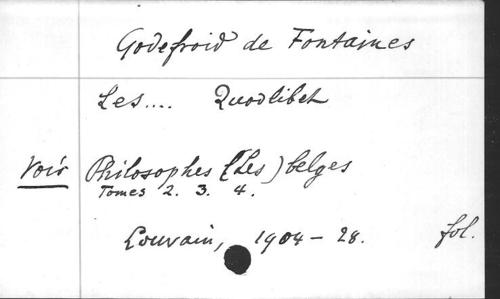 Godefroid de Fontaines
Les.... Quodlibet
Voir Philosophes (Les) belges
Tomes 2. 3. 4.
Louvain, 1904-28. fol.